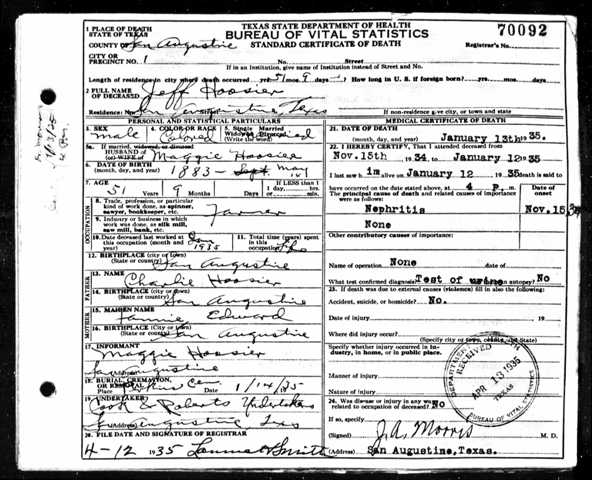 TEXAS STATE DEPARTMENT OF HEALTH
BUREAU OF VITAL STATISTICS
STANDARD CERTIFICATE OF DEATH
70092
Registrar's No.
1 PLACE OF DEATH
STATE OF TEXAS
COUNTY OF San Augustine
CITY OR PRECINCT NO. 1
Street
If in an Institution, give name of Institution instead of Street and No.
Length of residence in city where death occurred yrs. 51 9 days How long in U. S. if foreign born? yrs. mos. days
2 FULL NAME OF DECEASED Jeff Hoosier
Residence: No. San Augustine, Texas
If non-residence give city, or town and state
PERSONAL AND STATISTICAL PARTICULARS
3. SEX male
4. COLOR OR RACE Colored
5. Single Married Widowed Divorced (Write the word)
5a. If married, widowed, or divorced
HUSBAND OF (or) WIFE OF Maggie Hoosier
6. DATE OF BIRTH 1883- Sept. May
7. AGE 51 Years 9 Months Days
If LESS than 1 day, hrs. min.
OCCUPATION
8. Trade, profession, or particular kind of work done, as spinner, sawyer, bookkeeper, etc. Farmer
9. Industry or business in which work was done, as silk mill, saw mill, bank, etc.
10. Date deceased last worked at this occupation (month and year) Jan 1935
11. Total time (years) spent in this occupation
12. BIRTHPLACE (City or town) (State or country) San Augustine
FATHER
13. NAME Charlie Hoosier
14. BIRTHPLACE (City or town) (State or country) San Augustine
MOTHER
15. MAIDEN NAME Fannie Edward
16. BIRTHPLACE (City or town) (State or country) San Augustine
17. INFORMANT Maggie Hoosier
San Augustine
18. BURIAL, CREMATION, OR REMOVAL
Place Cem 1/14/35
19. UNDERTAKER Cook & Roberts Undertakers
(Address) San Augustine Tex
20. FILE DATE AND SIGNATURE OF REGISTRAR
4-12 1935 Smith
MEDICAL CERTIFICATE OF DEATH
21. DATE OF DEATH
(month, day, and year) January 13th 1935.
22. I HEREBY CERTIFY, That I attended deceased from
Nov. 15th 1934 to January 12 1935
I last saw him alive on January 12 1935 death is said to
have occurred on the date stated above, at 4 p. m.
The principal cause of death and related causes of importance were as follows:
Date of onset
Nephritis Nov. 15, 34
None
Other contributory causes of importance:
Name of operation None date of
What test confirmed diagnosis? Test of urine an autopsy? No
23. If death was due to external causes (violence) fill in also the following:
Accident, suicide, or homicide? No.
Date of injury 19
Where did injury occur?
(Specify city or town, county, and State)
Specify whether injury occurred in industry, in home, or in public place.
Manner of injury
Nature of injury
24. Was disease or injury in any way related to occupation of deceased? No
If so, specify
(Signed) J.A. Morris M. D.
(Address) San Augustine, Texas.
RECEIVED
APR 13 1935
TEXAS
BUREAU OF VITAL STATISTICS